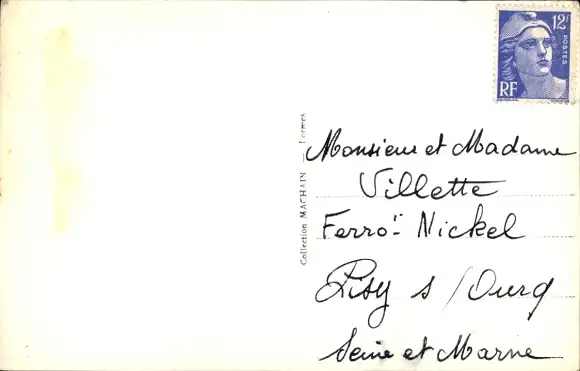 12F
POSTES
RF
Collection MACHAIN — Lormes
Monsieur et Madame
Villette
Ferro-Nickel
Lisy s/Ourq
Seine et Marne